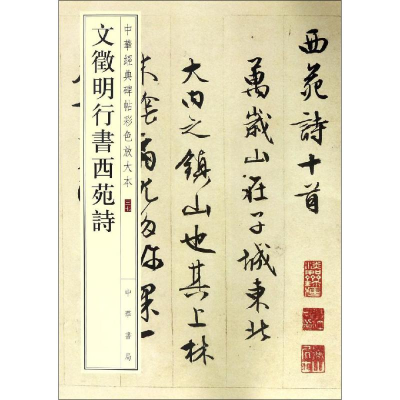 文徵明行書西苑詩
中華經典碑帖彩色放大本
中華書局
西苑詩十首
萬歲山在子城東北
大内之鎮山也其上林
木陰翳尤多珍果一